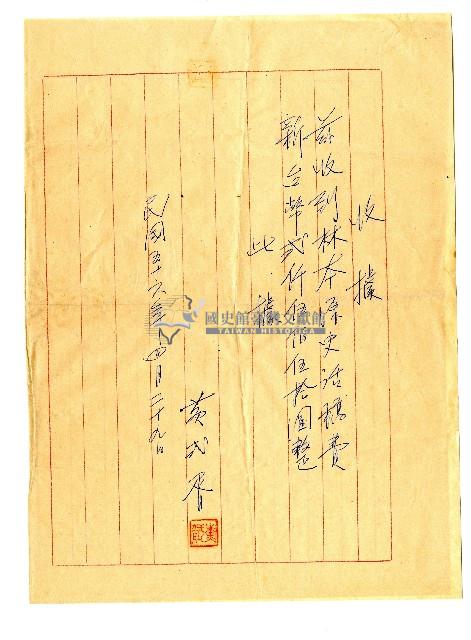 收據
茲收到林本源史話稿費
新台幣弍仟伍佰伍拾圓整
此據
黃
民國五十六年四月二十九日
國史館臺灣文獻館
TAIWAN HISTORICA